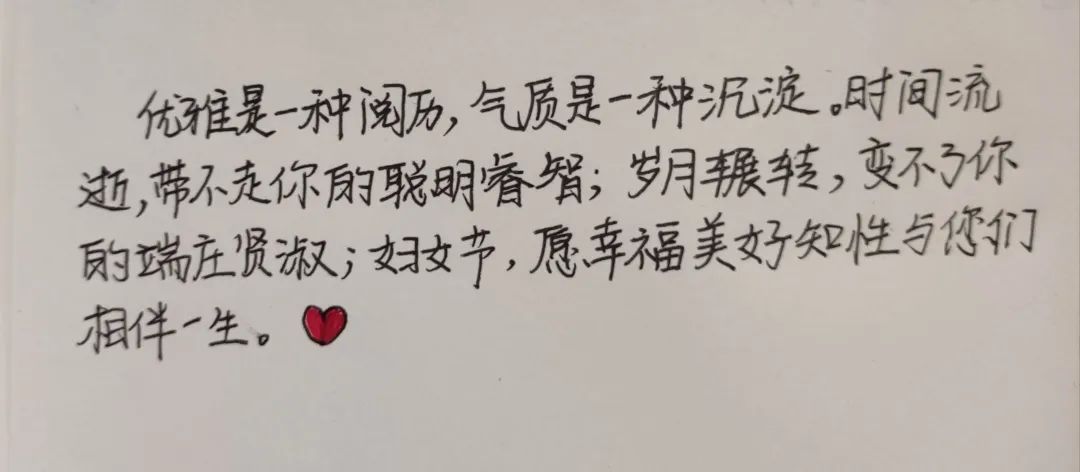 优雅是一种阅历,气质是一种沉淀。时间流
逝,带不走你的聪明睿智;岁月辗转,变不了你
的端庄贤淑;妇女节,愿幸福美好知性与您们
相伴一生。